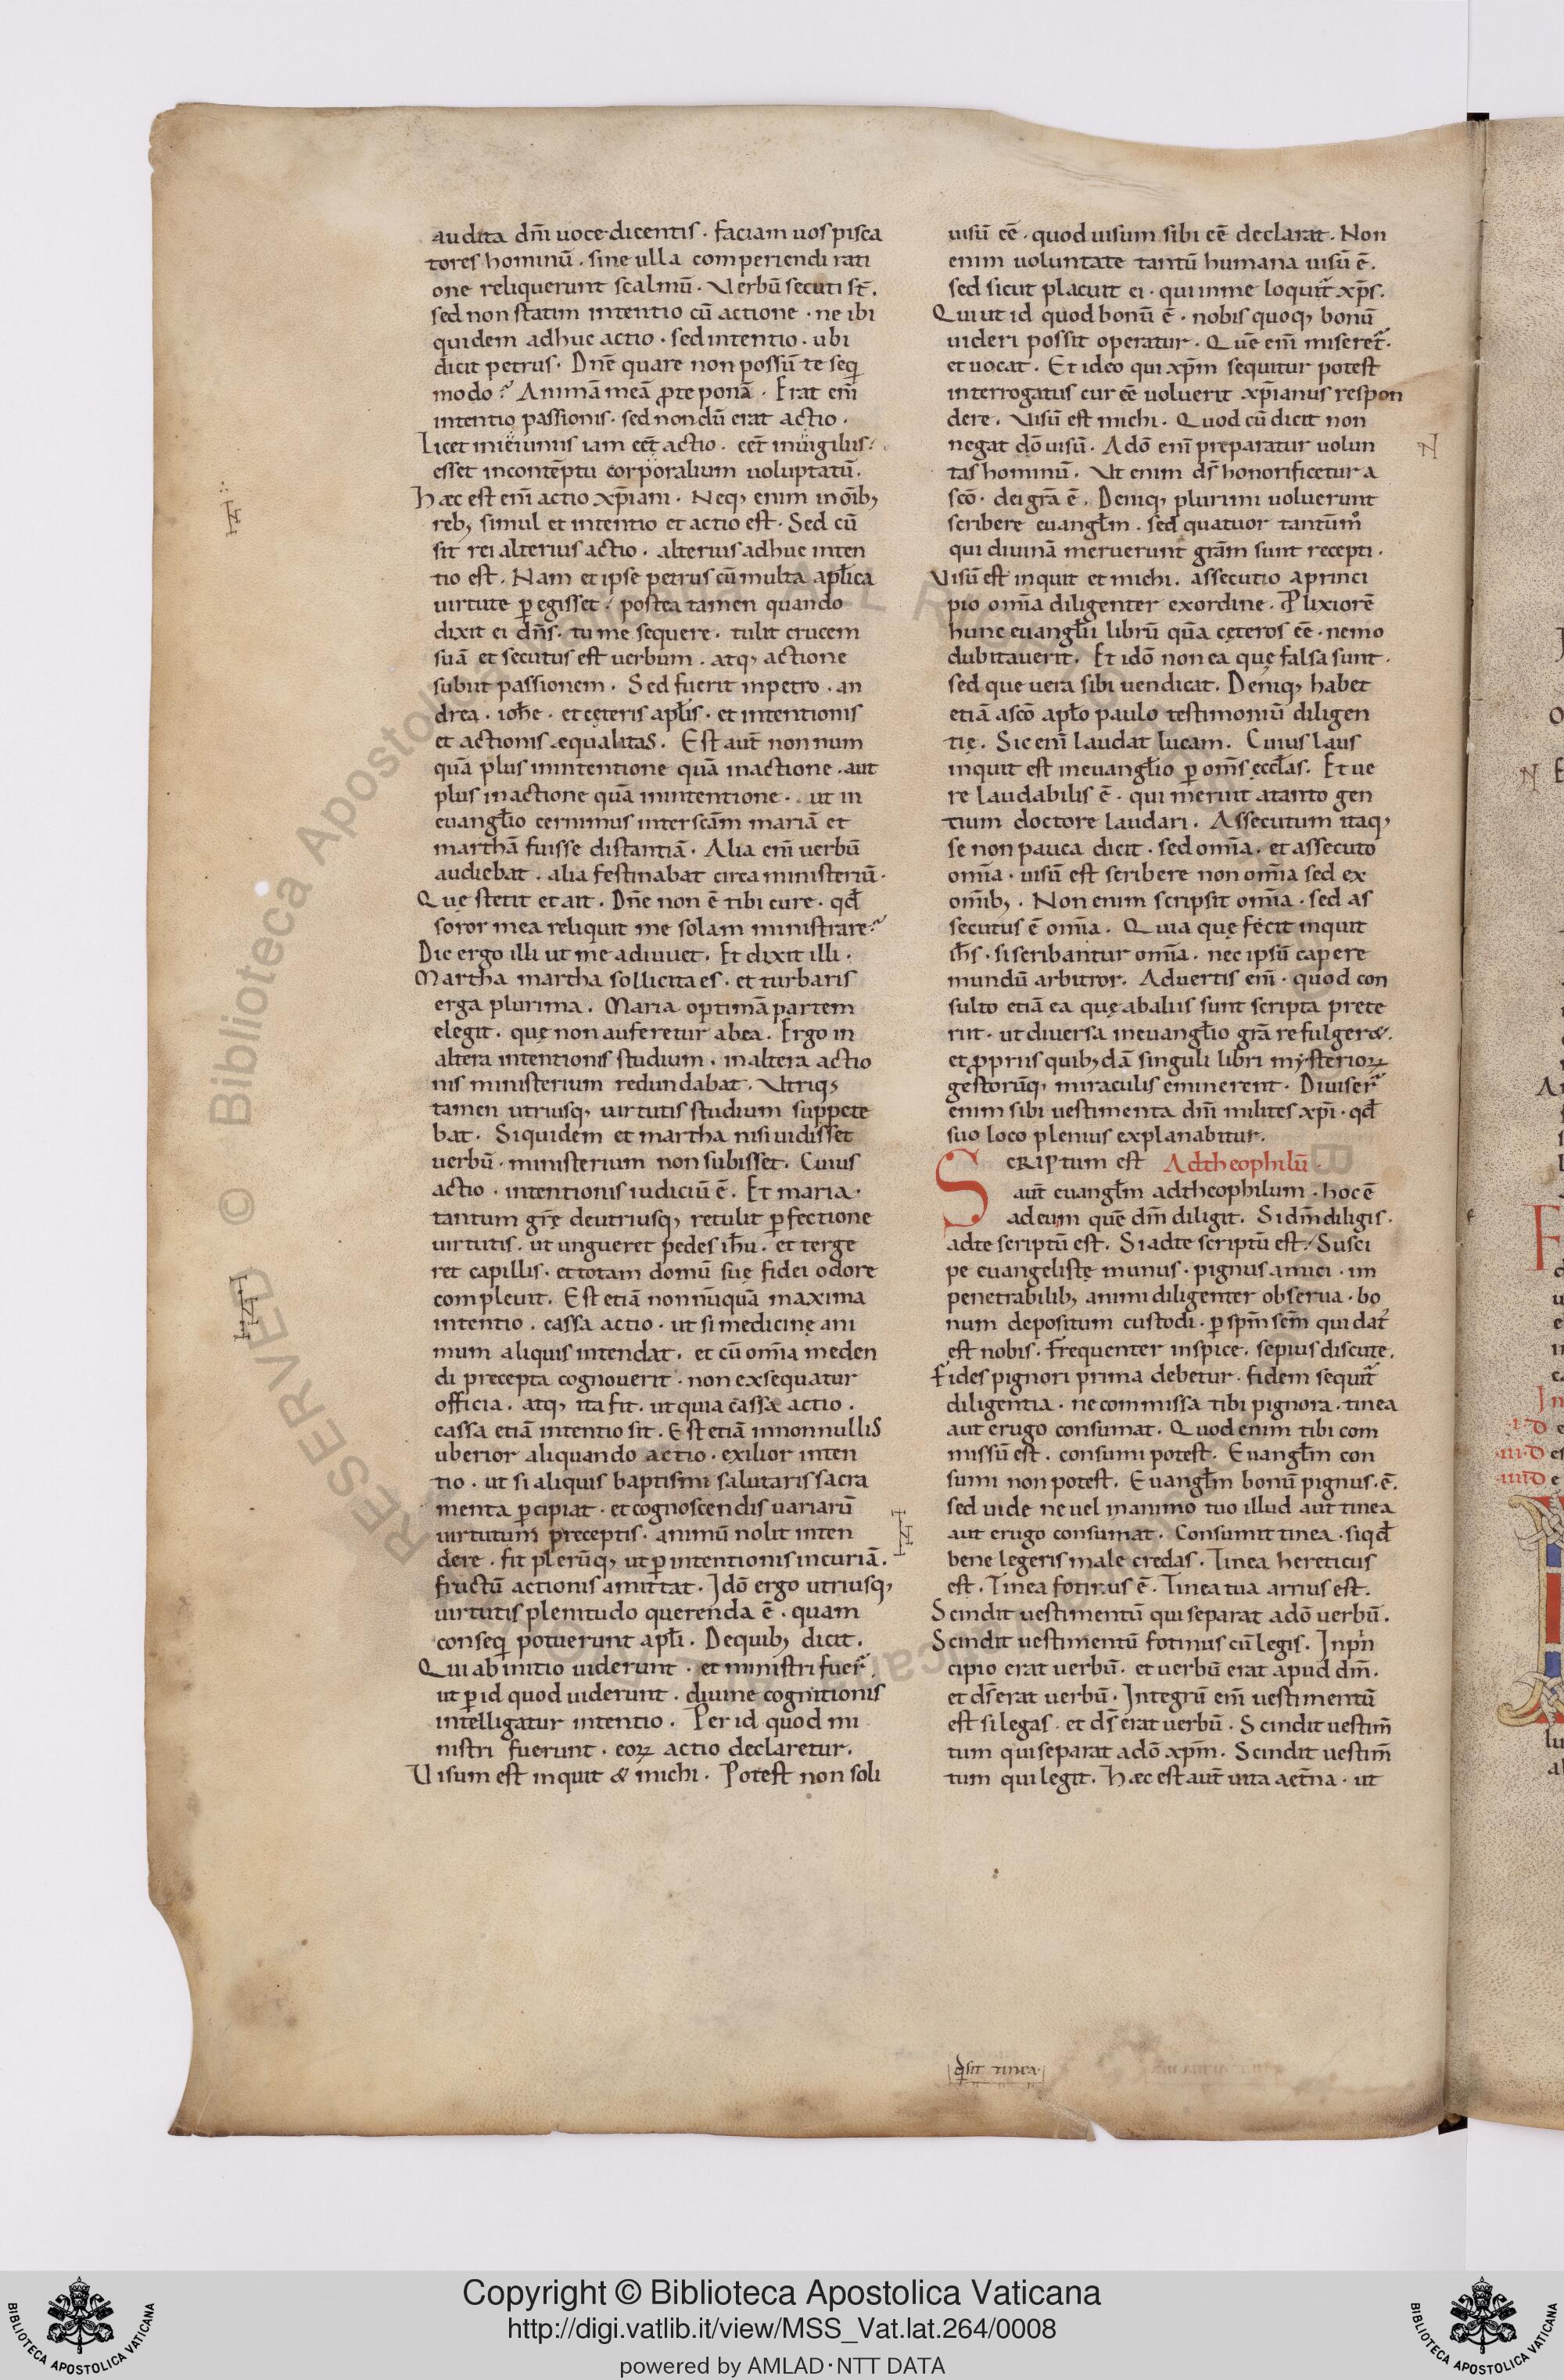 audita dm̅ uoce dicentis · faciam uos pisca
tores hominū · sine ulla comperiendi rati
one reliquerunt scalmū · Verbū secuti st̅.
sed non statim intentio cū actione · ne ibi
quidem adhuc actio · sed intentio · ubi
dicit petrus · Dn̅e quare non possū te seq̄
modo? Animā meā ꝓ te ponā · Erat em̅
intentio passionis · sed nondū erat actio ·
Licet in ieiunus iam eēt actio · eēt in uigiliis ·
esset in contēptu corporalium uoluptatū.
Hæc est em̅ actio xp̅iani · Neq, enim in om̅ib,
reb, simul et intentio et actio est · Sed cū
sit rei alterius actio · alterius adhuc inten
tio est · Nam et ipse petrus cū multa apl̅ica
uirtute ꝑegisset · postea tamen quando
dixit ei dn̅s · tu me sequere · tulit crucem
suā et secutus est uerbum · atq, actione
subiit passionem · Sed fuerit in petro · an
drea · ioh̅e · et cęteris apl̅is · et intentionis
et actionis æqualitas. Est aut̅ non num
quā plus in intentione quā in actione · aut
plus in actione quā in intentione · ut in
euangl̅io cernimus inter scām mariā et
marthā fuisse distantiā · Alia em̅ uerbū
audiebat · alia festinabat circa ministeriū ·
Quę stetit et ait · Dn̅e non ē tibi cure · qd̅
soror mea reliquit me solam ministrare?
Dic ergo illi ut me adiuuet. Et dixit illi ·
Martha martha sollicita es · et turbaris
erga plurima. Maria optimā partem
elegit · quę non auferetur ab ea. Ergo in
altera intentionis studium · in altera actio
nis ministerium redundabat. Vtriq,
tamen utriusq, uirtutis studium suppete
bat · Siquidem et martha nisi uidisset
uerbū · ministerium non subisset. Cuius
actio · intentionis iudiciū ē. Et maria ·
tantum grę̄ de utriusq, retulit ꝑfectione
uirtutis · ut ungueret pedes ih̅u · et terge
ret capillis · et totam domū suę fidei odore
compleuit. Est etiā nonnūquā maxima
intentio · cassa actio · ut si medicinę ani
mum aliquis intendat · et cū om̅ia meden
di precepta cognouerit · non exsequatur
officia · atq, ita fit · ut quia cassa actio ·
cassa etiā intentio sit · Est etiā in nonnullis
uberior aliquando actio · exilior inten
tio · ut si aliquis baptismi salutaris sacra
menta ꝑcipiat · et cognoscendis uariarū
uirtutum preceptis · animū nolit inten
dere · fit plerūq, ut ꝑ intentionis incuriā ·
fructū actionis amittat · Idō ergo utriusq,
uirtutis plenitudo querenda ē · quam
conseq̄ potuerunt apl̅i. De quib, dicit ·
Qui ab initio uiderunt · et ministri fuer̅ ·
ut ꝑ id quod uiderunt · diuine cognitionis
intelligatur intentio · Per id quod mi
nistri fuerunt · eoꝝ actio declaretur.
Visum est inquit & michi · Potest non soli
uisū eē · quod uisum sibi eē declarat · Non
enim uoluntate tantū humana uisū ē ·
sed sicut placuit ei · qui in me loquit̅ xp̅s ·
Qui ut id quod bonū ē · nobis quoq, bonū
uideri possit operatur · Quē em̅ miseret̅ ·
et uocat · Et ideo qui xp̅m sequitur potest
interrogatus cur eē uoluerit xp̅ianus respon
dere · Visū est michi · Quod cū dicit non
negat dō uisū · A dō em̅ preparatur uolun
tas hominū · Vt enim ds̅ honorificetur a
scō · dei grā ē · Deniq, plurimi uoluerunt
scribere euangl̅m · sed quatuor tantūm̊
qui diuinā meruerunt grām sunt recepti ·
Visū est inquit et michi · assecuto a princi
pio om̅ia diligenter ex ordine · Plixiorē
hunc euangl̅ii librū qūa cęteros eē · nemo
dubitauerit · Et idō non ea quę falsa sunt ·
sed que uera sibi uendicat · Deniq, habet
etiā a scō apl̅o paulo testimoniū diligen
tię · Sic em̅ laudat lucam · Cuius laus
inquit est in euangl̅io ꝑ om̅s ęccl̅as · Et ue
re laudabilis ē · qui meruit a tanto gen
tium doctore laudari · Assecutum itaq,
se non pauca dicit · sed om̅ia · et assecuto
om̅ia · uisū est scribere non om̅ia sed ex
om̅ib, · Non enim scripsit om̅ia · sed as
secutus ē om̅ia · Quia quę fecit inquit
ih̅s · si scribantur om̅ia · nec ipsū capere
mundū arbitror · Aduertis em̅ · quod con
sulto etiā ea quę ab aliis sunt scripta prete
riit · ut diuersa in euangl̅io grā refulger& ·
et ꝓpriis quib,dā singuli libri mysterioꝝ
gestorūq, miraculis eminerent · Diuiser̅
enim sibi uestimenta dm̅i milites xp̅i · qd̅
suo loco plenius explanabitur.
Scriptum est Ad theophilū ·
aut̅ euangl̅m ad theophilum · hoc ē
ad eum quē dm̅ diligit · Si dm̅ diligis ·
ad te scriptū est · Si ad te scriptū est · Susci
pe euangelistę munus · pignus amici · in
penetrabilib, animi diligenter obserua · bo
num depositum custodi · ꝑ spm̅ scm̅ qui dat̅
est nobis · frequenter inspice · sepius discute ·
Fides pignori prima debetur · fidem sequit̅
diligentia · ne commissa tibi pignora · tinea
aut erugo consumat · Quod enim tibi com
missū est · consumi potest · Euangl̅m con
sumi non potest · Euangl̅m bonū pignus · ē ·
sed uide ne uel in animo tuo illud aut tinea
aut erugo consumat · Consumit tinea · si qd̅
bene legeris male credas · Tinea hereticus
est · Tinea fotinus ē · Tinea tua arrius est ·
Scindit uestimentū qui separat a dō uerbū ·
Scindit uestimentū fotinus cū legis · In pn̅
cipio erat uerbū · et uerbū erat apud dm̅ ·
et ds̅ erat uerbū · Integrū em̅ uestimentū
est si legas · et ds̅ erat uerbū · Scindit uestim̅
tum qui separat a dō xp̅m · Scindit uestim̅
tum qui legit · Hæc est aut̅ uita aet̅na · ut
q̄ sit tinea ·
© Biblioteca Apostolica Vaticana
RESERVED
Copyright © Biblioteca Apostolica Vaticana
http://digi.vatlib.it/view/MSS_Vat.lat.264/0008
powered by AMLAD·NTT DATA
BIBLIOTECA APOSTOLICA VATICANA
BIBLIOTECA APOSTOLICA VATICANA